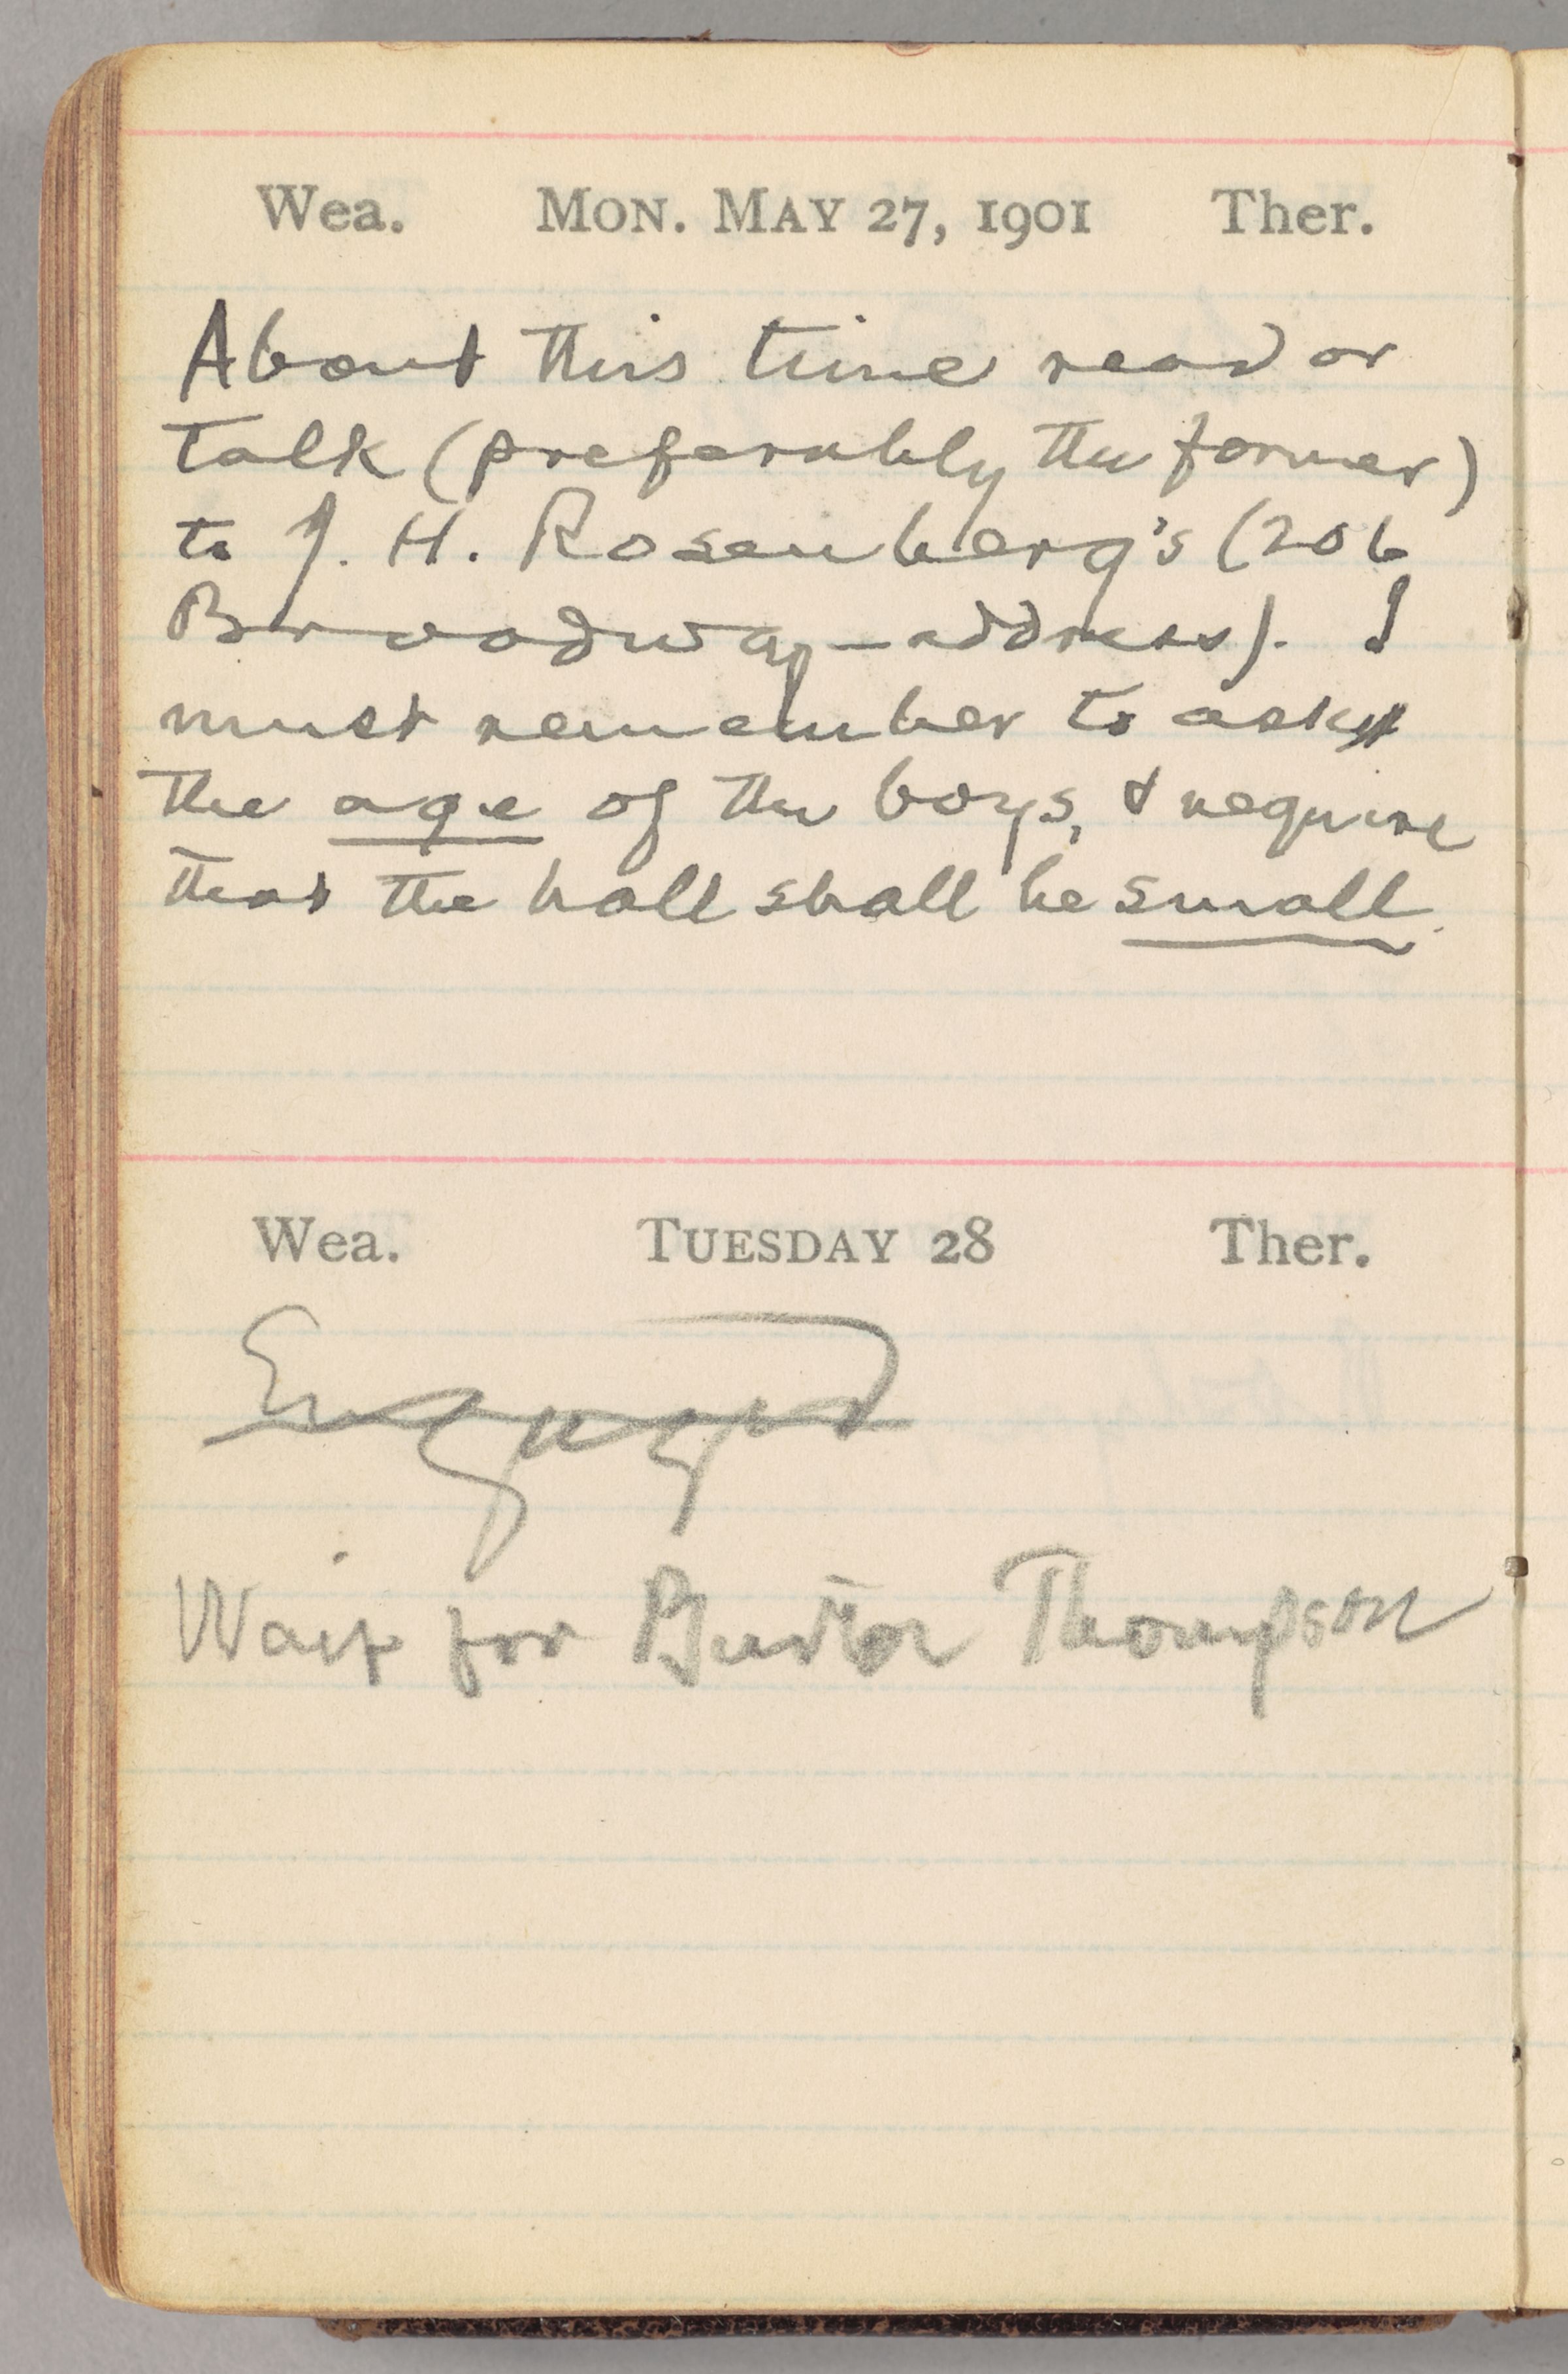 Wea. MON. MAY 27, 1901 Ther.
About this time read or
talk (preferably the former)
to J. H. Rosenberg's (206
Broadway—address). I
must remember to ask
the age of the boys, & require
that the hall shall be small.
Wea. TUESDAY 28 Ther.
Engaged
Wait for Thompson